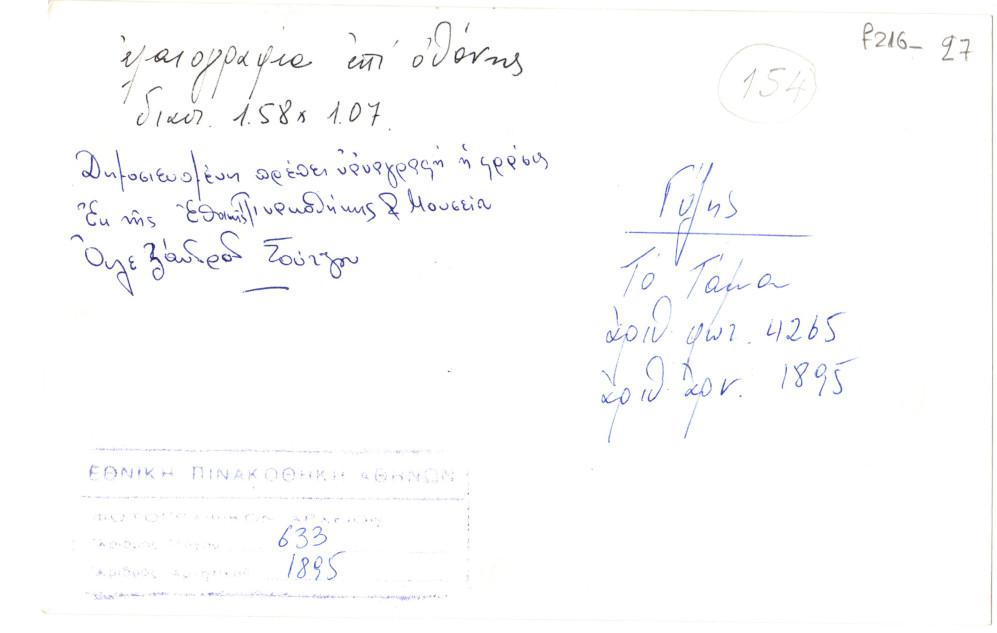 ἐλαιογραφία ἐπί ὀθόνης
διαστ. 1.58 x 1.07.
Δημοσιευομένη πρέπει ἡ φράσις
Ἐκ τῆς Ἐθνικῆς Πινακοθήκης & Μουσείου
Ἀλεξάνδρου Σούτζου
F216- 27
154
Γύζης
Τό Τάμα
ἀριθ. φωτ. 4265
ἀριθ. ἀρν. 1895
ΕΘΝΙΚΗ ΠΙΝΑΚΟΘΗΚΗ ΑΘΗΝΩΝ
ΦΩΤΟΓΡΑΦΙΚΟΝ ΑΡΧΕΙΟΝ
Ἀριθμὸς 633
Ἀριθμὸς Ἀρνητικοῦ 1895